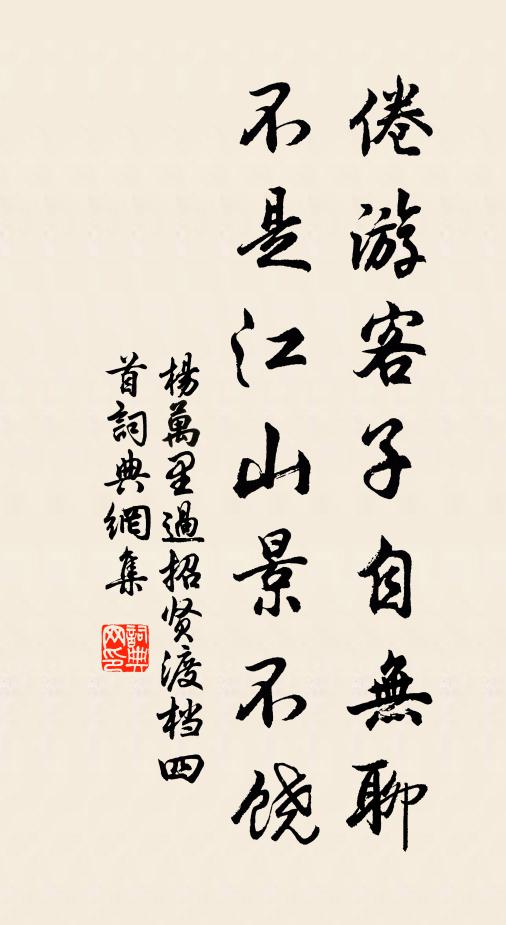 倦游客子自無聊
不是江山景不饶
楊萬里過招贤渡档四
首詞典網集
詞典網印